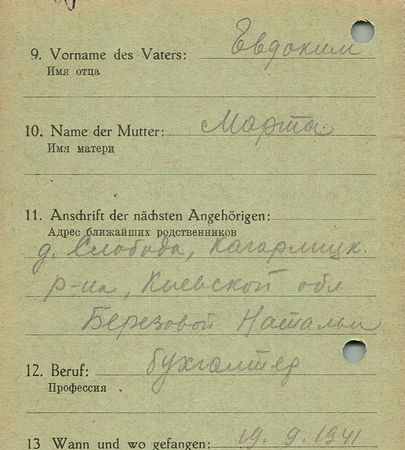 9. Vorname des Vaters: Евдоким
Имя отца
10. Name der Mutter: Марта
Имя матери
11. Anschrift der nächsten Angehörigen:
Адрес ближайших родственников
д. Слобода, Кагарлицк.
р-на, Киевской обл
Березовой Натальи
12. Beruf: бухгалтер
Профессия
13 Wann und wo gefangen: 19. 9. 1941